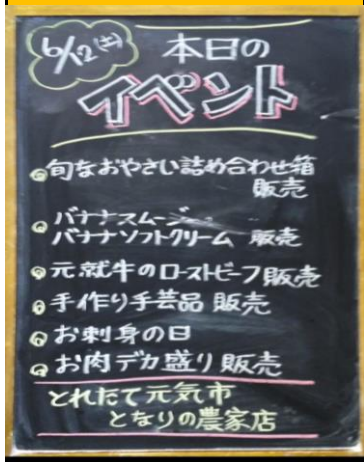 6/12(土)
本日の
イベント
旬なおやさい詰め合わせ箱
販売
バナナスムージー
バナナソフトクリーム 販売
元就牛のローストビーフ販売
手作り手芸品 販売
お刺身の日
お肉デカ盛り販売
とれたて元気市
となりの農家店